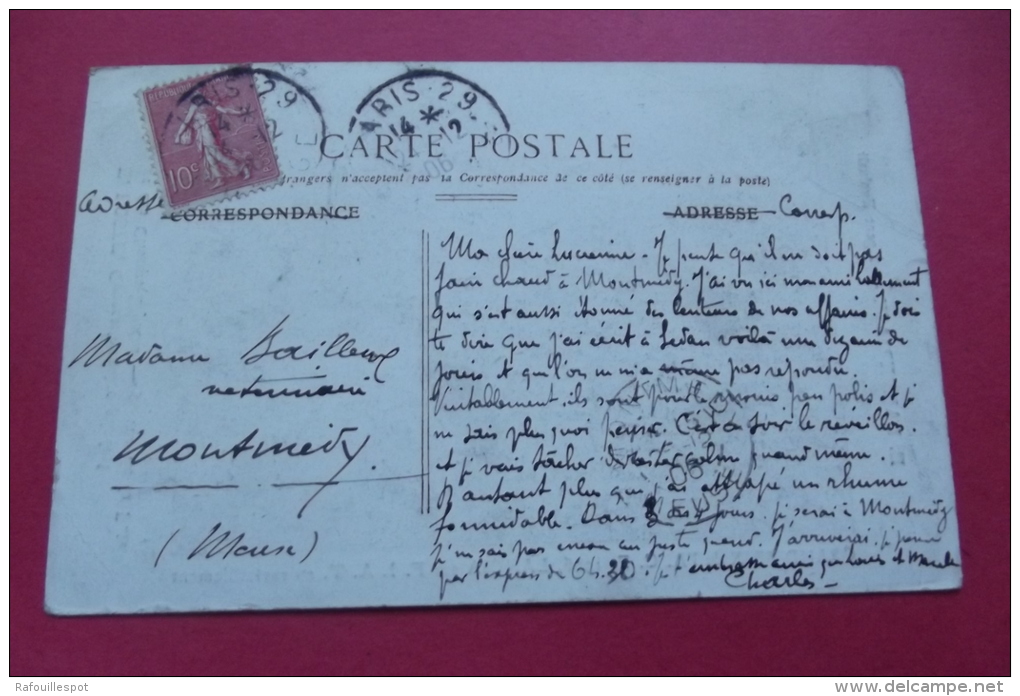 RÉPUBLIQUE
10c
PARIS · 29
14 * 12
ARIS · 29
14 * 12
06
CARTE POSTALE
étrangers n'acceptent pas la Correspondance de ce côté (se renseigner à la poste)
Adresse
CORRESPONDANCE
ADRESSE Corresp.
Madame Bailleux
veterinaire
Montmédy.
(Meuse)
Ma chère Lucienne. Je pense qu'il ne doit pas
faire chaud à Montmédy. J'ai vu ici mon ami
qui s'est aussi étonné des lenteurs de nos affaires. Je dois
te dire que j'ai écrit à Sedan voilà une dizaine de
jours et qu'l'on ne m'a même pas repondu.
Veritablement, ils sont pour le moins peu polis et je
ne sais plus quoi penser. C'est ce soir le réveillon.
et je vais tâcher de rester calme quand même.
D'autant plus que j'ai attrapé un rhume
formidable. Dans jours je serai à Montmédy
je ne sais pas encore au juste quand. J'arriverai je pense
par l'express de 6h.30 je t'embrasse ainsi que et
Charles
Rafouillespot
www.delcampe.net